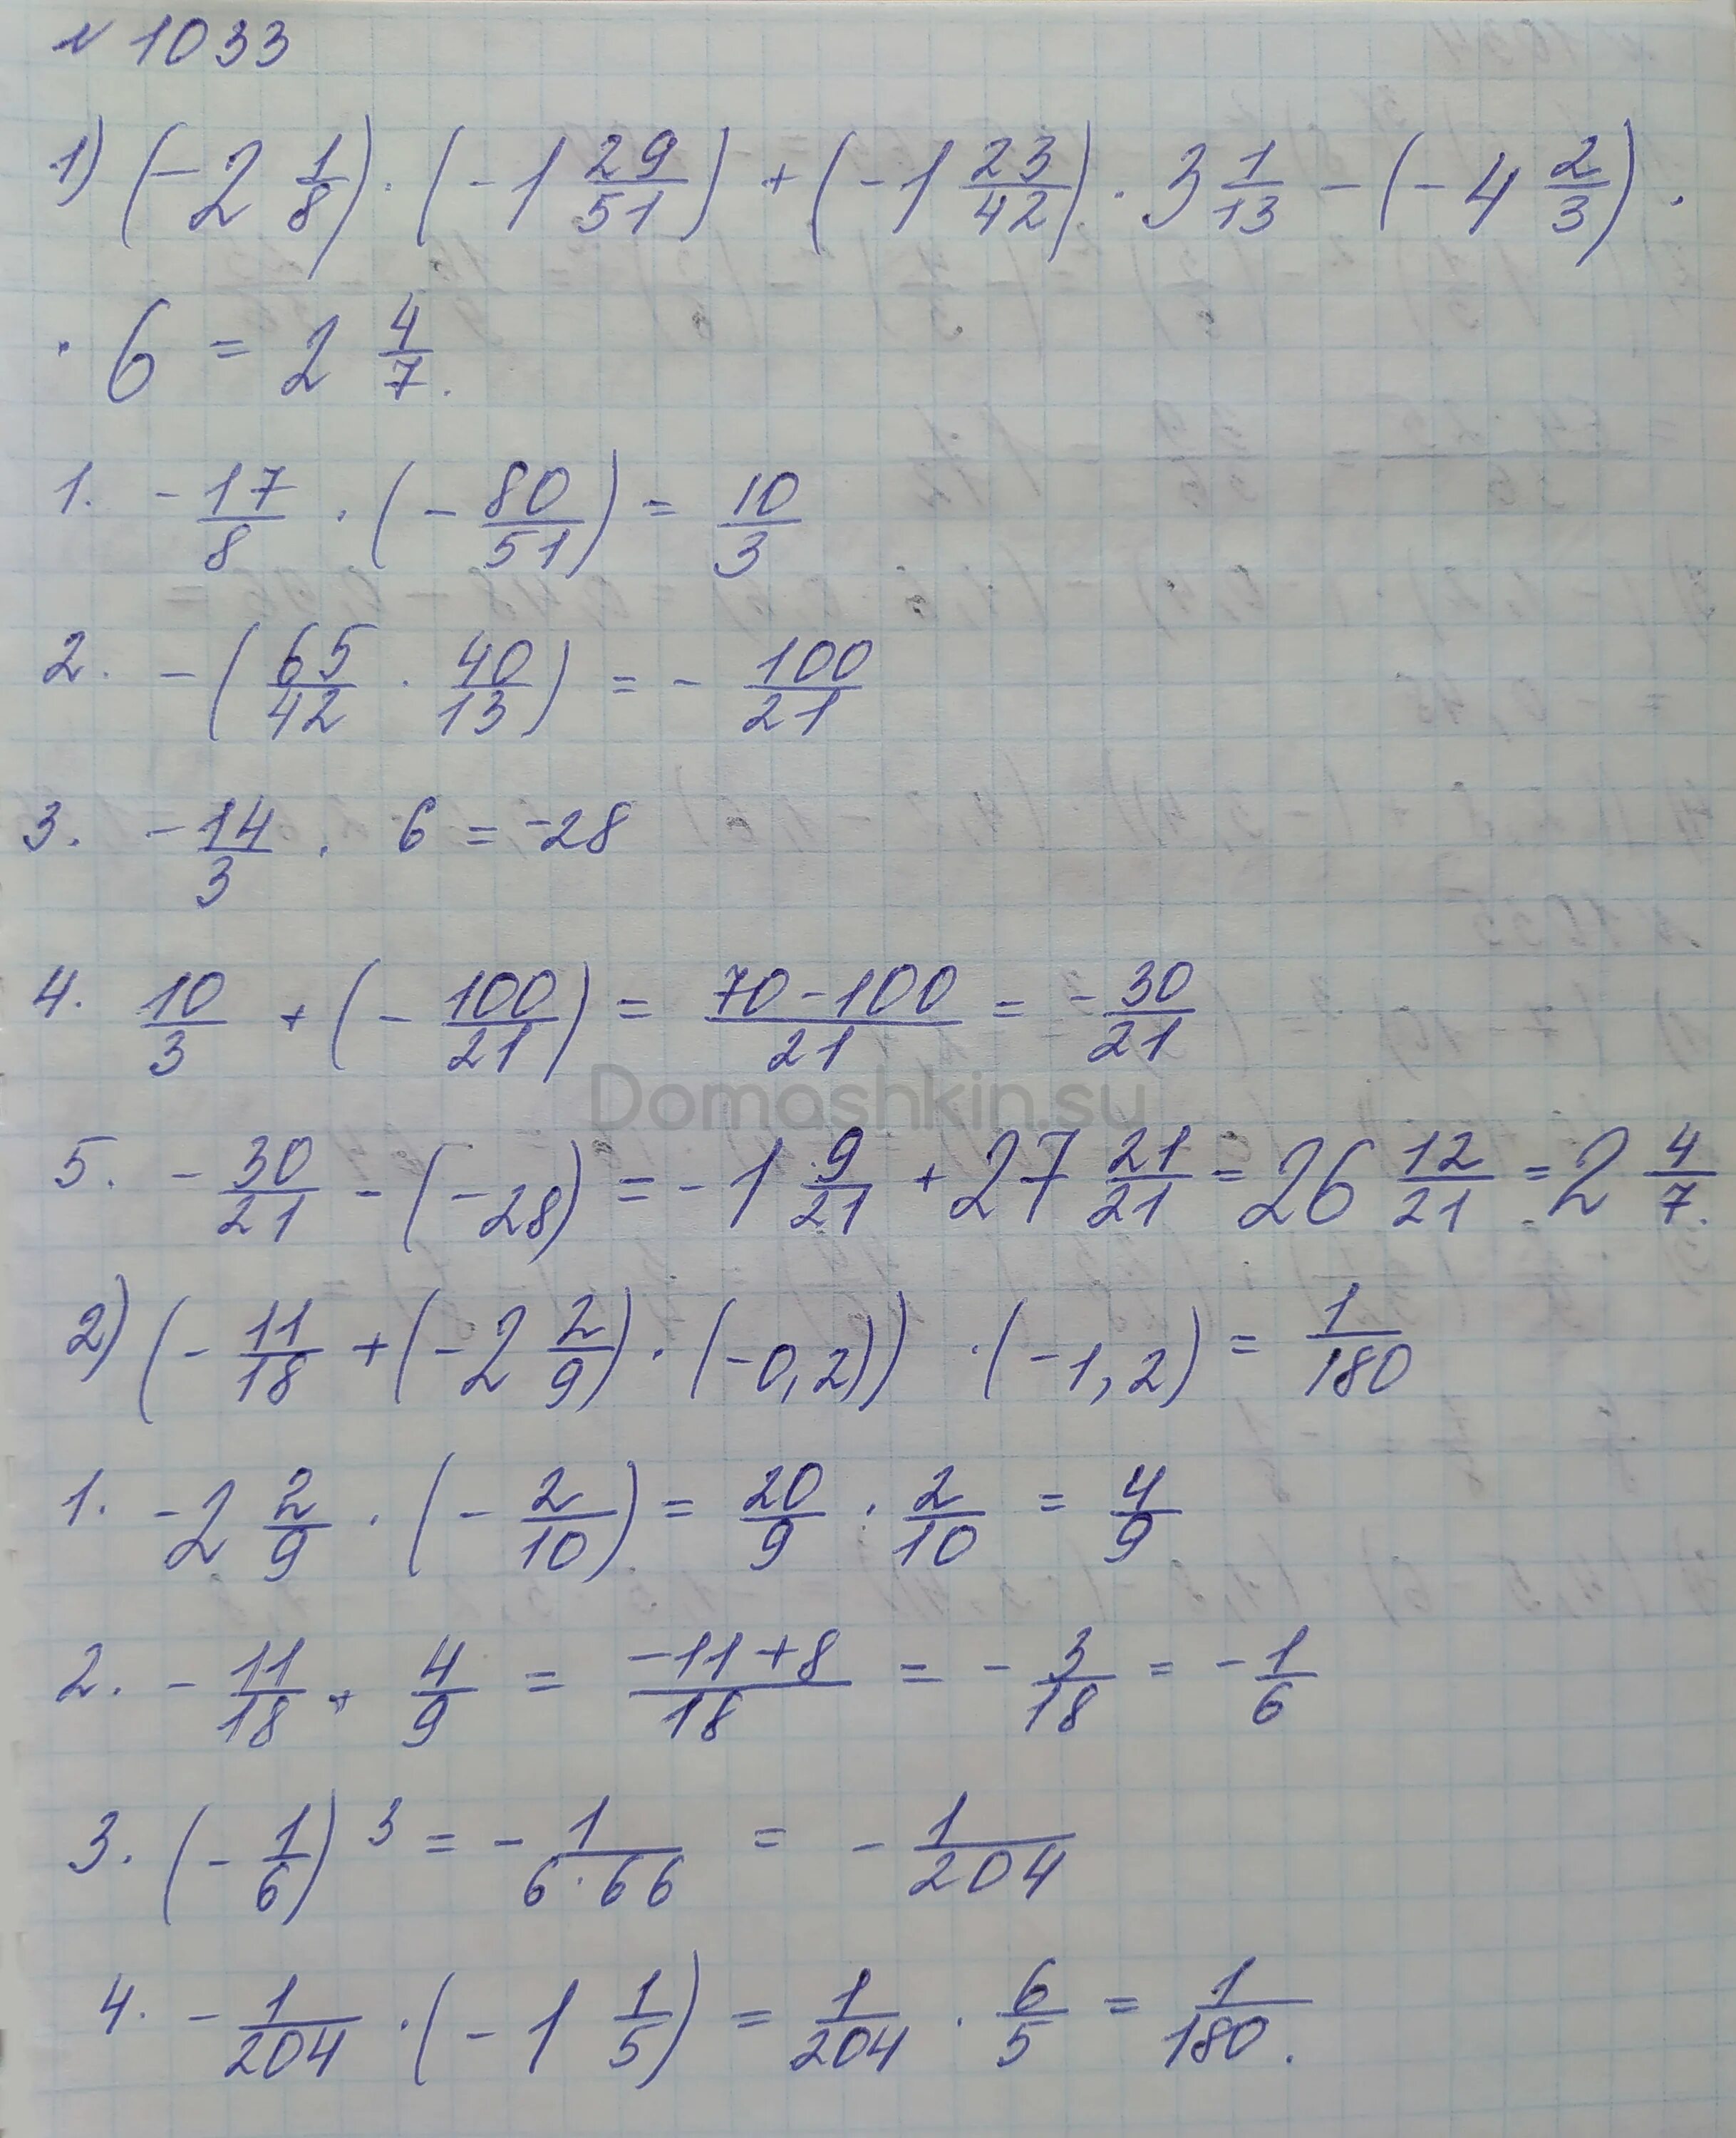 № 1033
1) (-2 1/8) · (-1 29/51) + (-1 23/42) · 3 1/13 - (-4 2/3) ·
· 6 = 2 4/7.
1. -17/8 · (-80/51) = 10/3
2. -(65/42 · 40/13) = -100/21
3. -14/3 · 6 = -28
4. 10/3 + (-100/21) = (70-100)/21 = -30/21
Domashkin.su
5. -30/21 - (-28) = -1 9/21 + 27 21/21 = 26 12/21 = 2 4/7.
2) (-11/18 + (-2 2/9) · (-0,2)) · (-1,2) = 1/180
1. -2 2/9 · (-2/10) = 20/9 · 2/10 = 4/9
2. -11/18 + 4/9 = (-11+8)/18 = -3/18 = -1/6
3. (-1/6)³ = -1/(6·66) = -1/204
4. -1/204 · (-1 1/5) = 1/204 · 6/5 = 1/180.